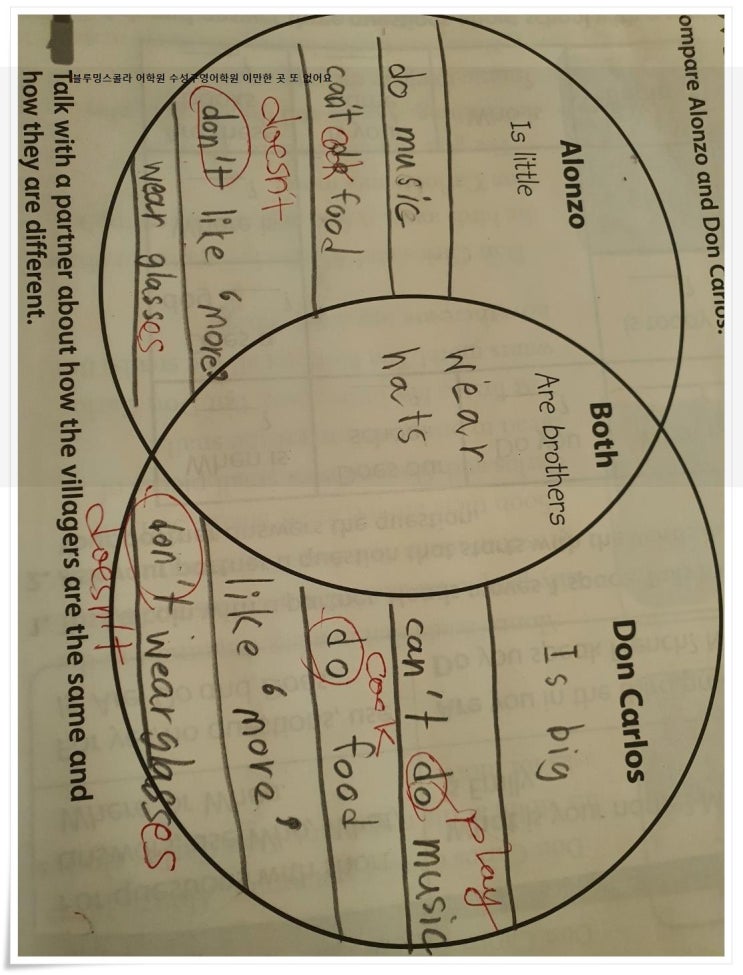 ompare Alonzo and Don Carlos.
Alonzo
Is little
do music
can't cook food
doesn't
don't like "more"
wear glasses
Both
Are brothers
wear
hats
Don Carlos
Is big
play
can't do music
cook
do food
like "more"
don't wear glasses
doesn't
Talk with a partner about how the villagers are the same and
how they are different.
블루밍스콜라 어학원 수성구영어학원 이만한 곳 또 없어요